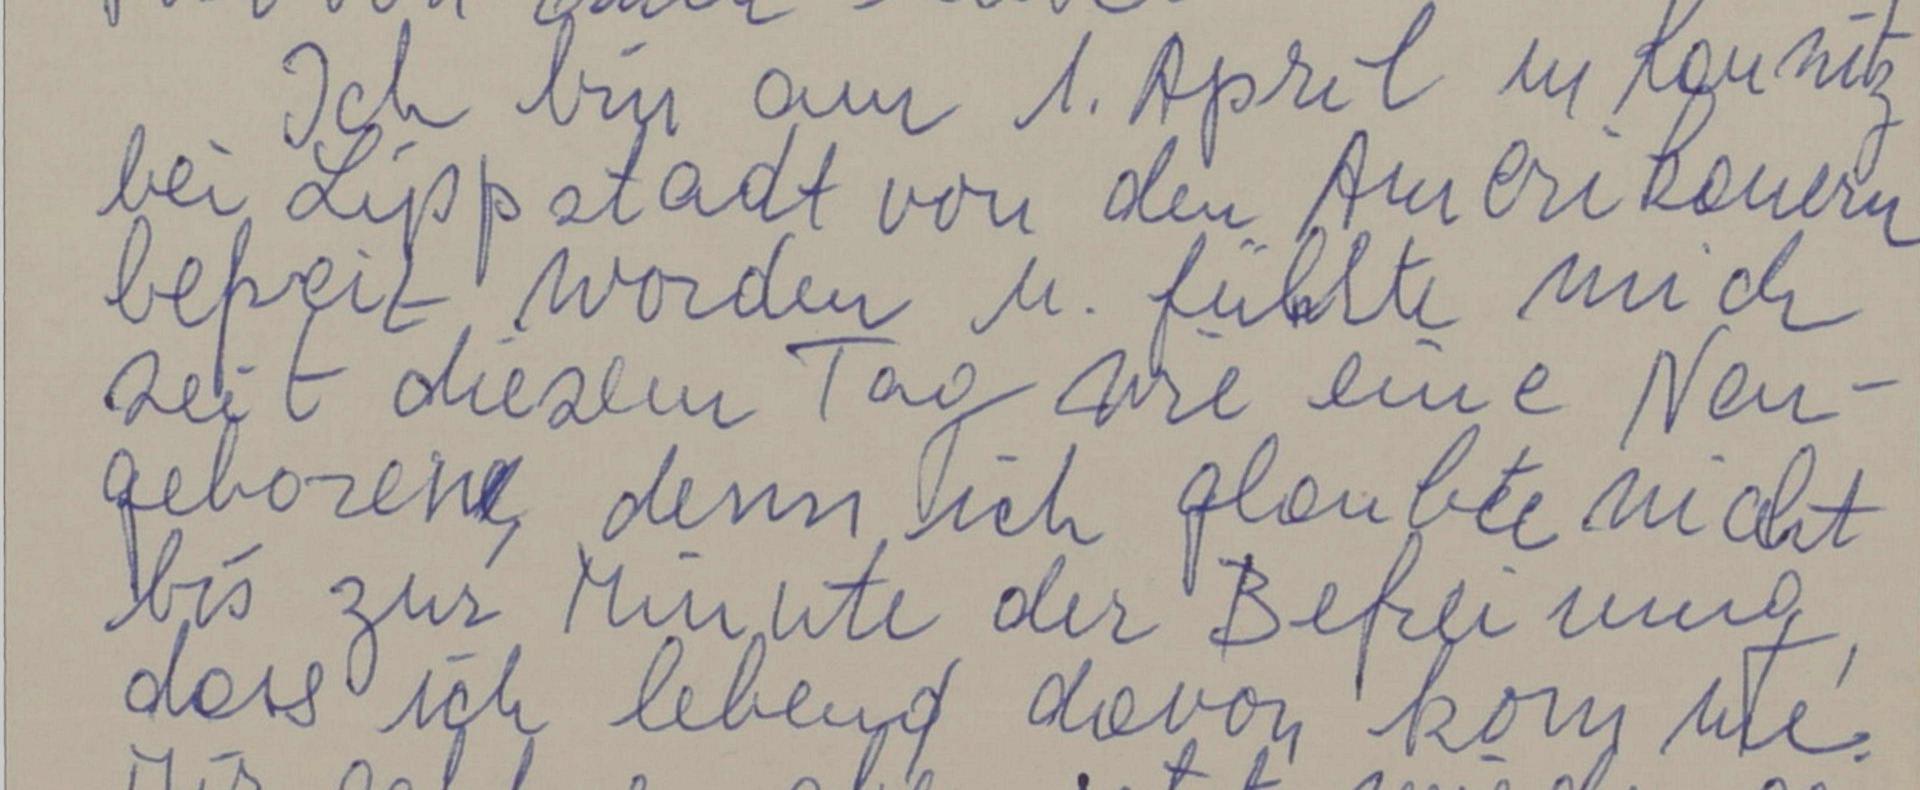 Ich bin am 1. April in Kaunitz
bei Lippstadt von den Amerikanern
befreit worden u. fühlte mich
seit diesem Tag wie eine Neu-
geborene, denn ich glaubte nicht
bis zur Minute der Befreiung,
dass ich lebend davon kommte.